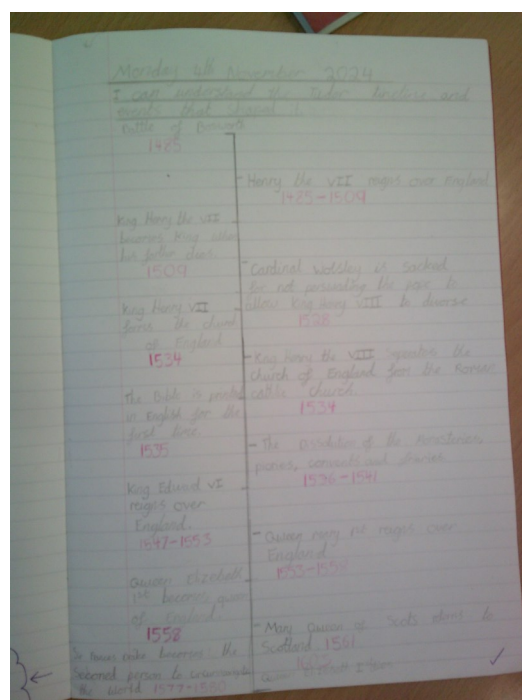 Monday 4th November 2024
I can understand the Tudor timeline and
events that shaped it
Battle of Bosworth
1485
Henry the VII reigns over England
1485-1509
King Henry the VII
becomes King when
his father dies.
1509
Cardinal Wolsley is sacked
for not persuading the pope to
allow King Henry VIII to divorse
1528
King Henry VII
forms the church
of England
1534
King Henry the VIII separates the
Church of England from the Roman
church.
1534
The Bible is printed
in English for the
first time.
1535
The Dissolution of the
1536-1541
King Edward VI
reigns over
England.
1547-1553
Queen mary 1st reigns over
England.
1553-1558
Queen Elizabeth
1st becomes queen
of England.
1558
Mary Queen of Scots returns to
Scotland 1561
becomes the
second person to
the world 1577-1580